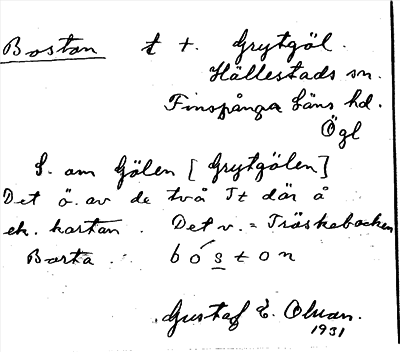 Bostan t t. Grytgöl.
Hällestads sn.
Finspånga läns hd.
Ögl
S. om Gölen [Grytgölen]
Det ö. av de två Tt där å
ek. kartan. Det v. = Träskebacken
Borta. bóston
Gustaf E. Olsson.
1931